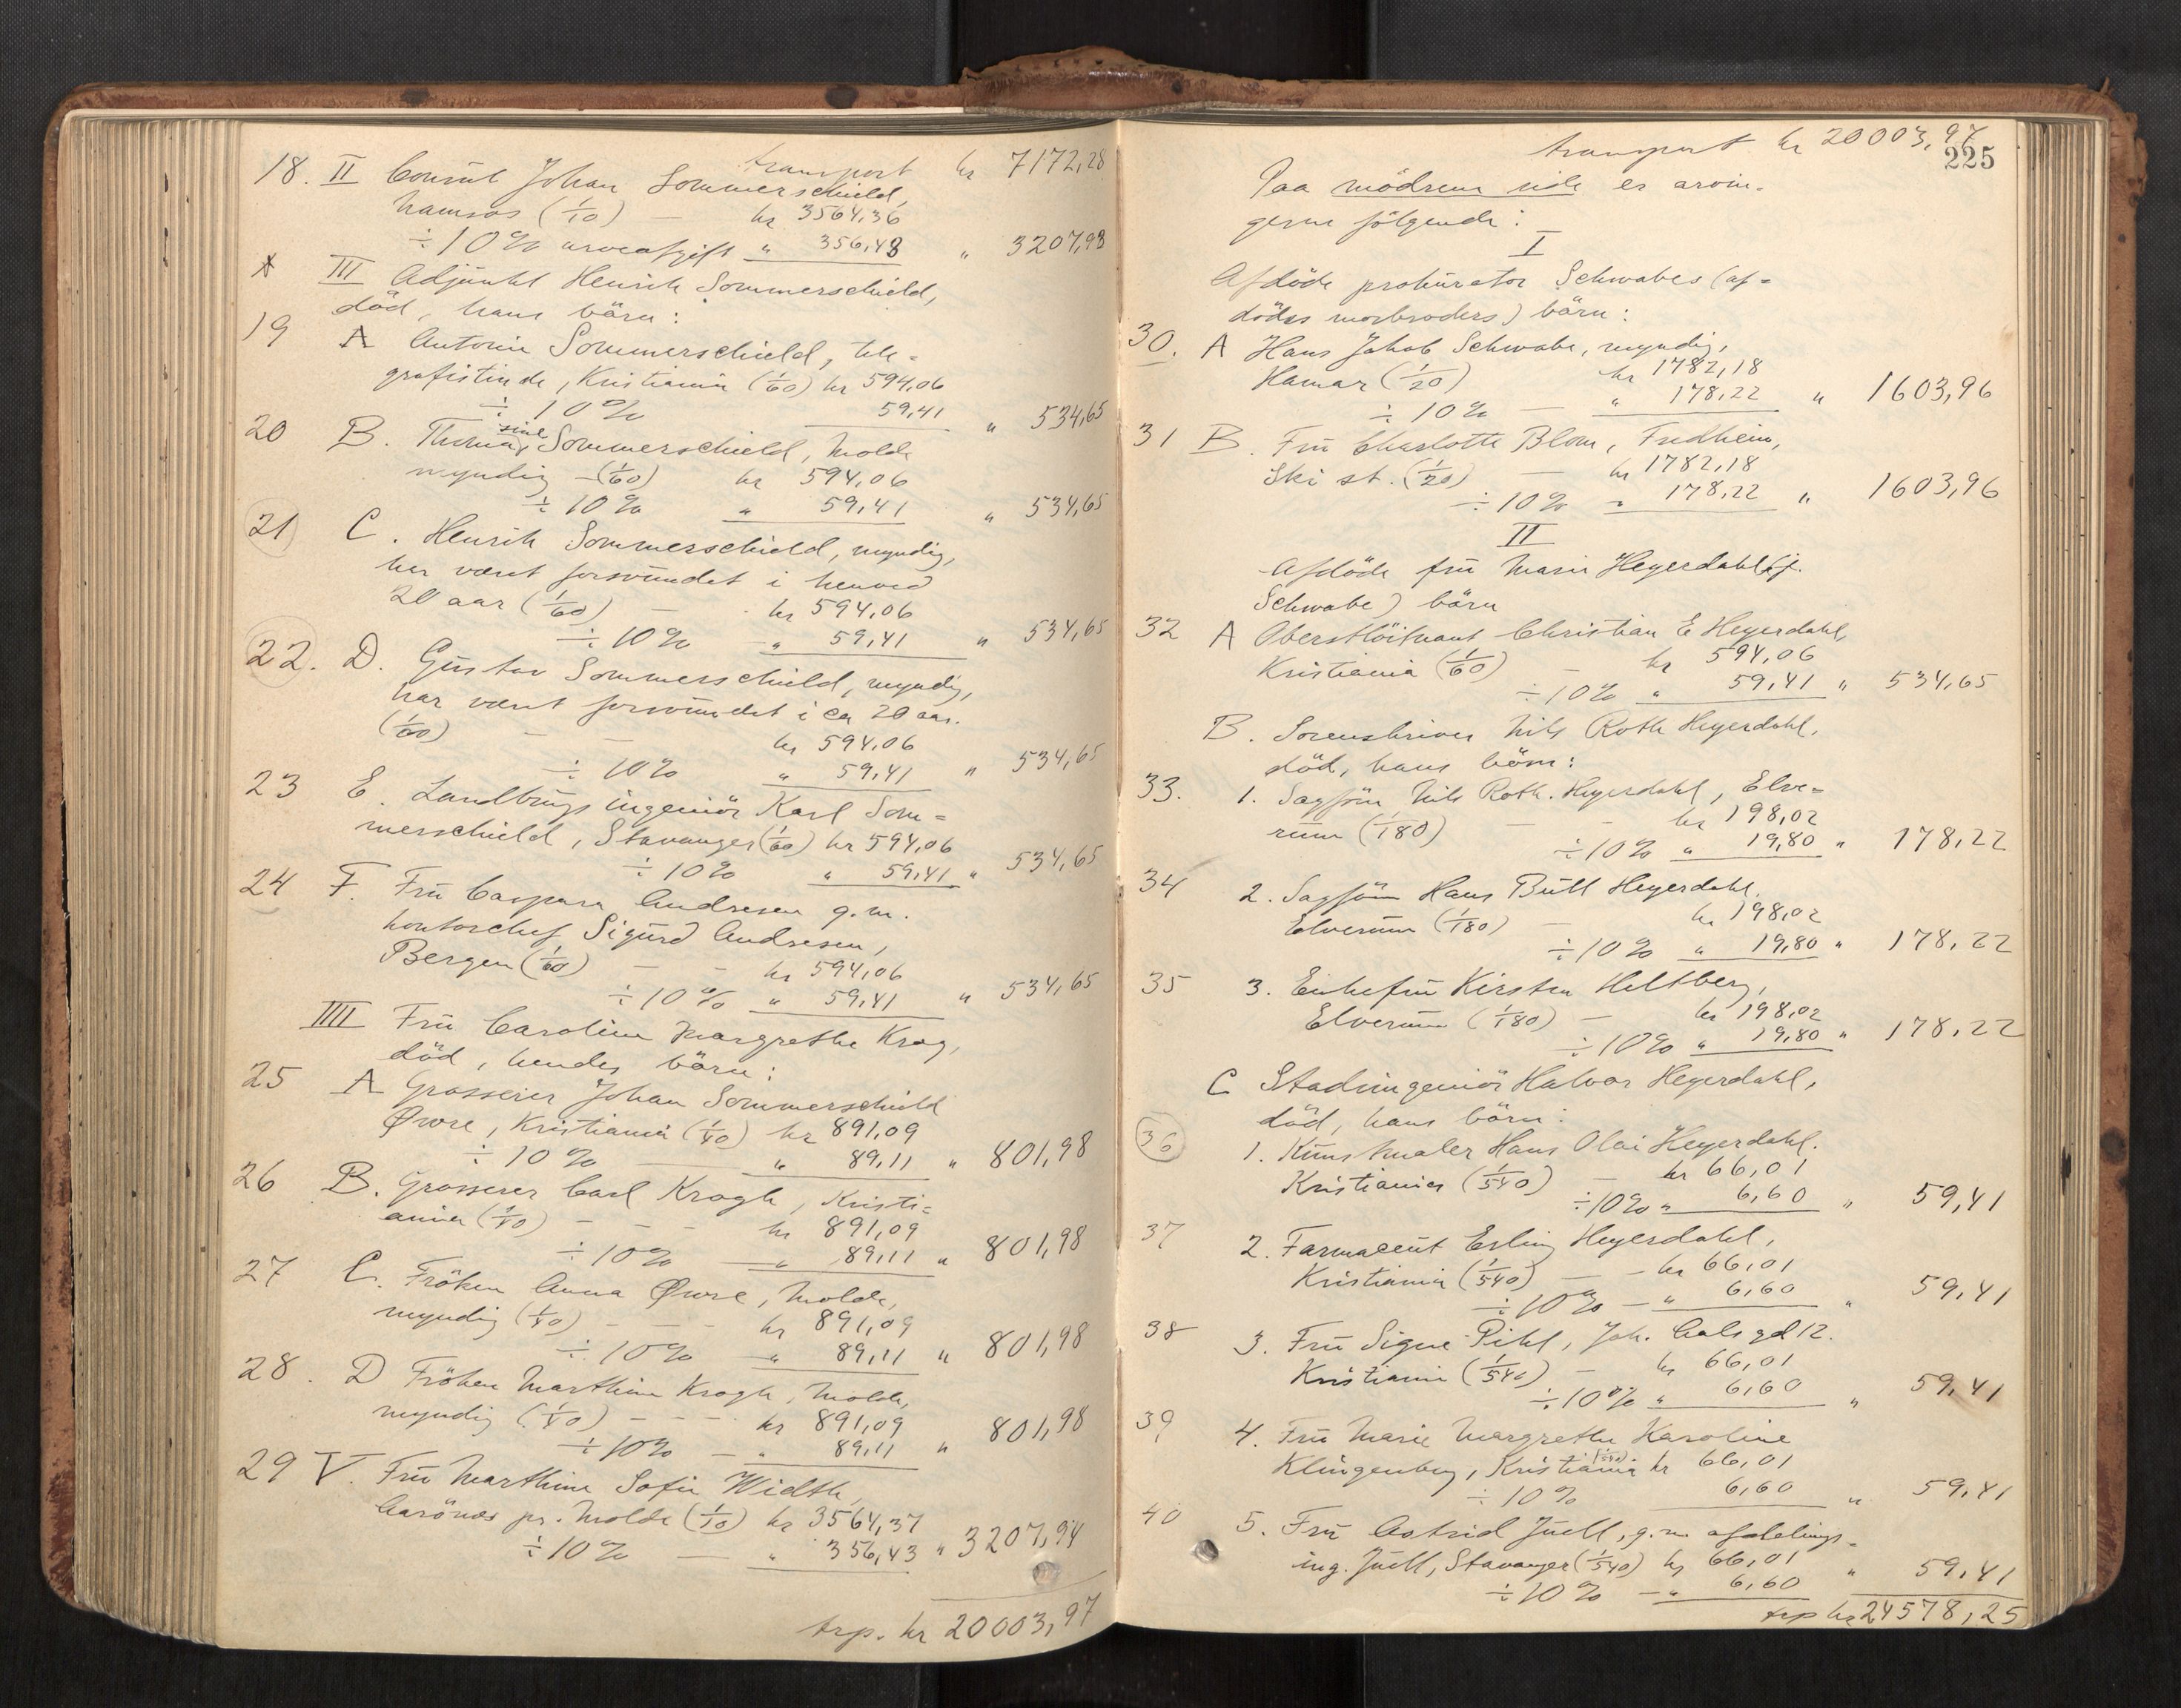 transport kr 7172,28
18. II Consul Johan Sommerschield,
Namsos (1/10) — kr 3564,36
÷ 10% arveafgift " 356,43 " 3207,93
III Adjunkt Henrik Sommerschield,
död, hans börn:
19 A Antonie Sommerschield, tele-
grafistinde, Kristiania (1/60) kr 594,06
÷ 10% 59,41 " 534,65
20 B. Thomasine Sommerschield, Molde
myndig – (1/60) kr 594,06
÷ 10% " 59,41 " 534,65
21 C. Henrik Sommerschield, myndig,
har været forsvundet i henved
20 aar (1/60) — kr 594,06
÷ 10% — " 59,41 " 534,65
22. D. Gustav Sommerschield, myndig,
har været forsvundet i ca 20 aar.
(1/60) — — kr 594,06
÷ 10% " 59,41 " 534,65
23 E. Landbrugsingeniör Karl Som-
merschield, Stavanger (1/60) kr 594,06
÷ 10% " 59,41 " 534,65
24 F. Fru Caspara Andresen g.m.
kontorchef Sigurd Andresen,
Bergen (1/60) — - kr 594,06
÷ 10% " 59,41 " 534,65
IIII Fru Caroline Margrethe Krag,
död, hendes börn:
25 A Grosserer Johan Sommerschield
Øwre, Kristiania (1/40) kr 891,09
÷ 10% — " 89,11 " 801,98
26 B. Grosserer Carl Krogh, Kristi-
ania (1/40) - - - kr 891,09
÷ 10% — " 89,11 " 801,98
27 C. Fröken Anna Øwre, Molde,
myndig (1/40) - - - kr 891,09
÷ 10% — " 89,11 " 801,98
28. D Fröken Marthine Krogh, Molde,
myndig (1/40) - - - kr 891,09
÷ 10% — " 89,11 " 801,98
29 V. Fru Marthine Sofie Width,
pr. Molde (1/10) kr 3564,37
÷ 10% — " 356,43 " 3207,94
trp. kr 20003,97
transport kr 20003,97
225
Paa mödrene side er arvin-
gerne fölgende:
I
Afdöde prokurator Schwabes (af-
dödes morbroders) börn:
30. A Hans Jakob Schwabe, myndig,
Hamar (1/20) kr 1782,18
÷ 10% — " 178,22 " 1603,96
31 B. Fru Charlotte Blom, Fredheim,
Ski st. (1/20) — kr 1782,18
÷ 10% " 178,22 " 1603,96
II
Afdöde fru Marie Heyerdahl (f.
Schwabe) börn
32 A Oberstlöitnant Christian E Heyerdahl,
Kristiania (1/60) — kr 594,06
÷ 10% " 59,41 " 534,65
B. Sorenskriver Nils Roth Heyerdahl,
död, hans börn:
33. 1. Sagförer Nils Roth. Heyerdahl, Elve-
rum (1/180) — - kr 198,02
÷ 10% " 19,80 " 178,22
34 2. Sagförer Hans Bull Heyerdahl,
Elverum (1/180) — kr 198,02
÷ 10% " 19,80 " 178,22
35 3. Enkefru Kirsten Heltberg,
Elverum (1/180) — kr 198,02
÷ 10% " 19,80 " 178,22
C Stadsingeniör Halvor Heyerdahl,
död, hans börn:
36 1. Kunstmaler Hans Olai Heyerdahl.
Kristiania (1/540) — kr 66,01
÷ 10% " 6,60 " 59,41
37 2. Farmaceut Erling Heyerdahl,
Kristiania (1/540) — - kr 66,01
÷ 10% — " 6,60 " 59,41
38 3. Fru Signe Pihl, Joh. gd 12.
Kristiania (1/540) — kr 66,01
÷ 10% " 6,60 " 59,41
39 4. Fru Marie Margrethe Karoline
Klingenberg, Kristiania (1/540) kr 66,01
÷ 10% 6,60 " 59,41
40 5. Fru Astrid Juell, g.m. afdelings-
ing. Juell, Stavanger (1/540) kr 66,01
÷ 10% — " 6,60 " 59,41
trp kr 24578,25